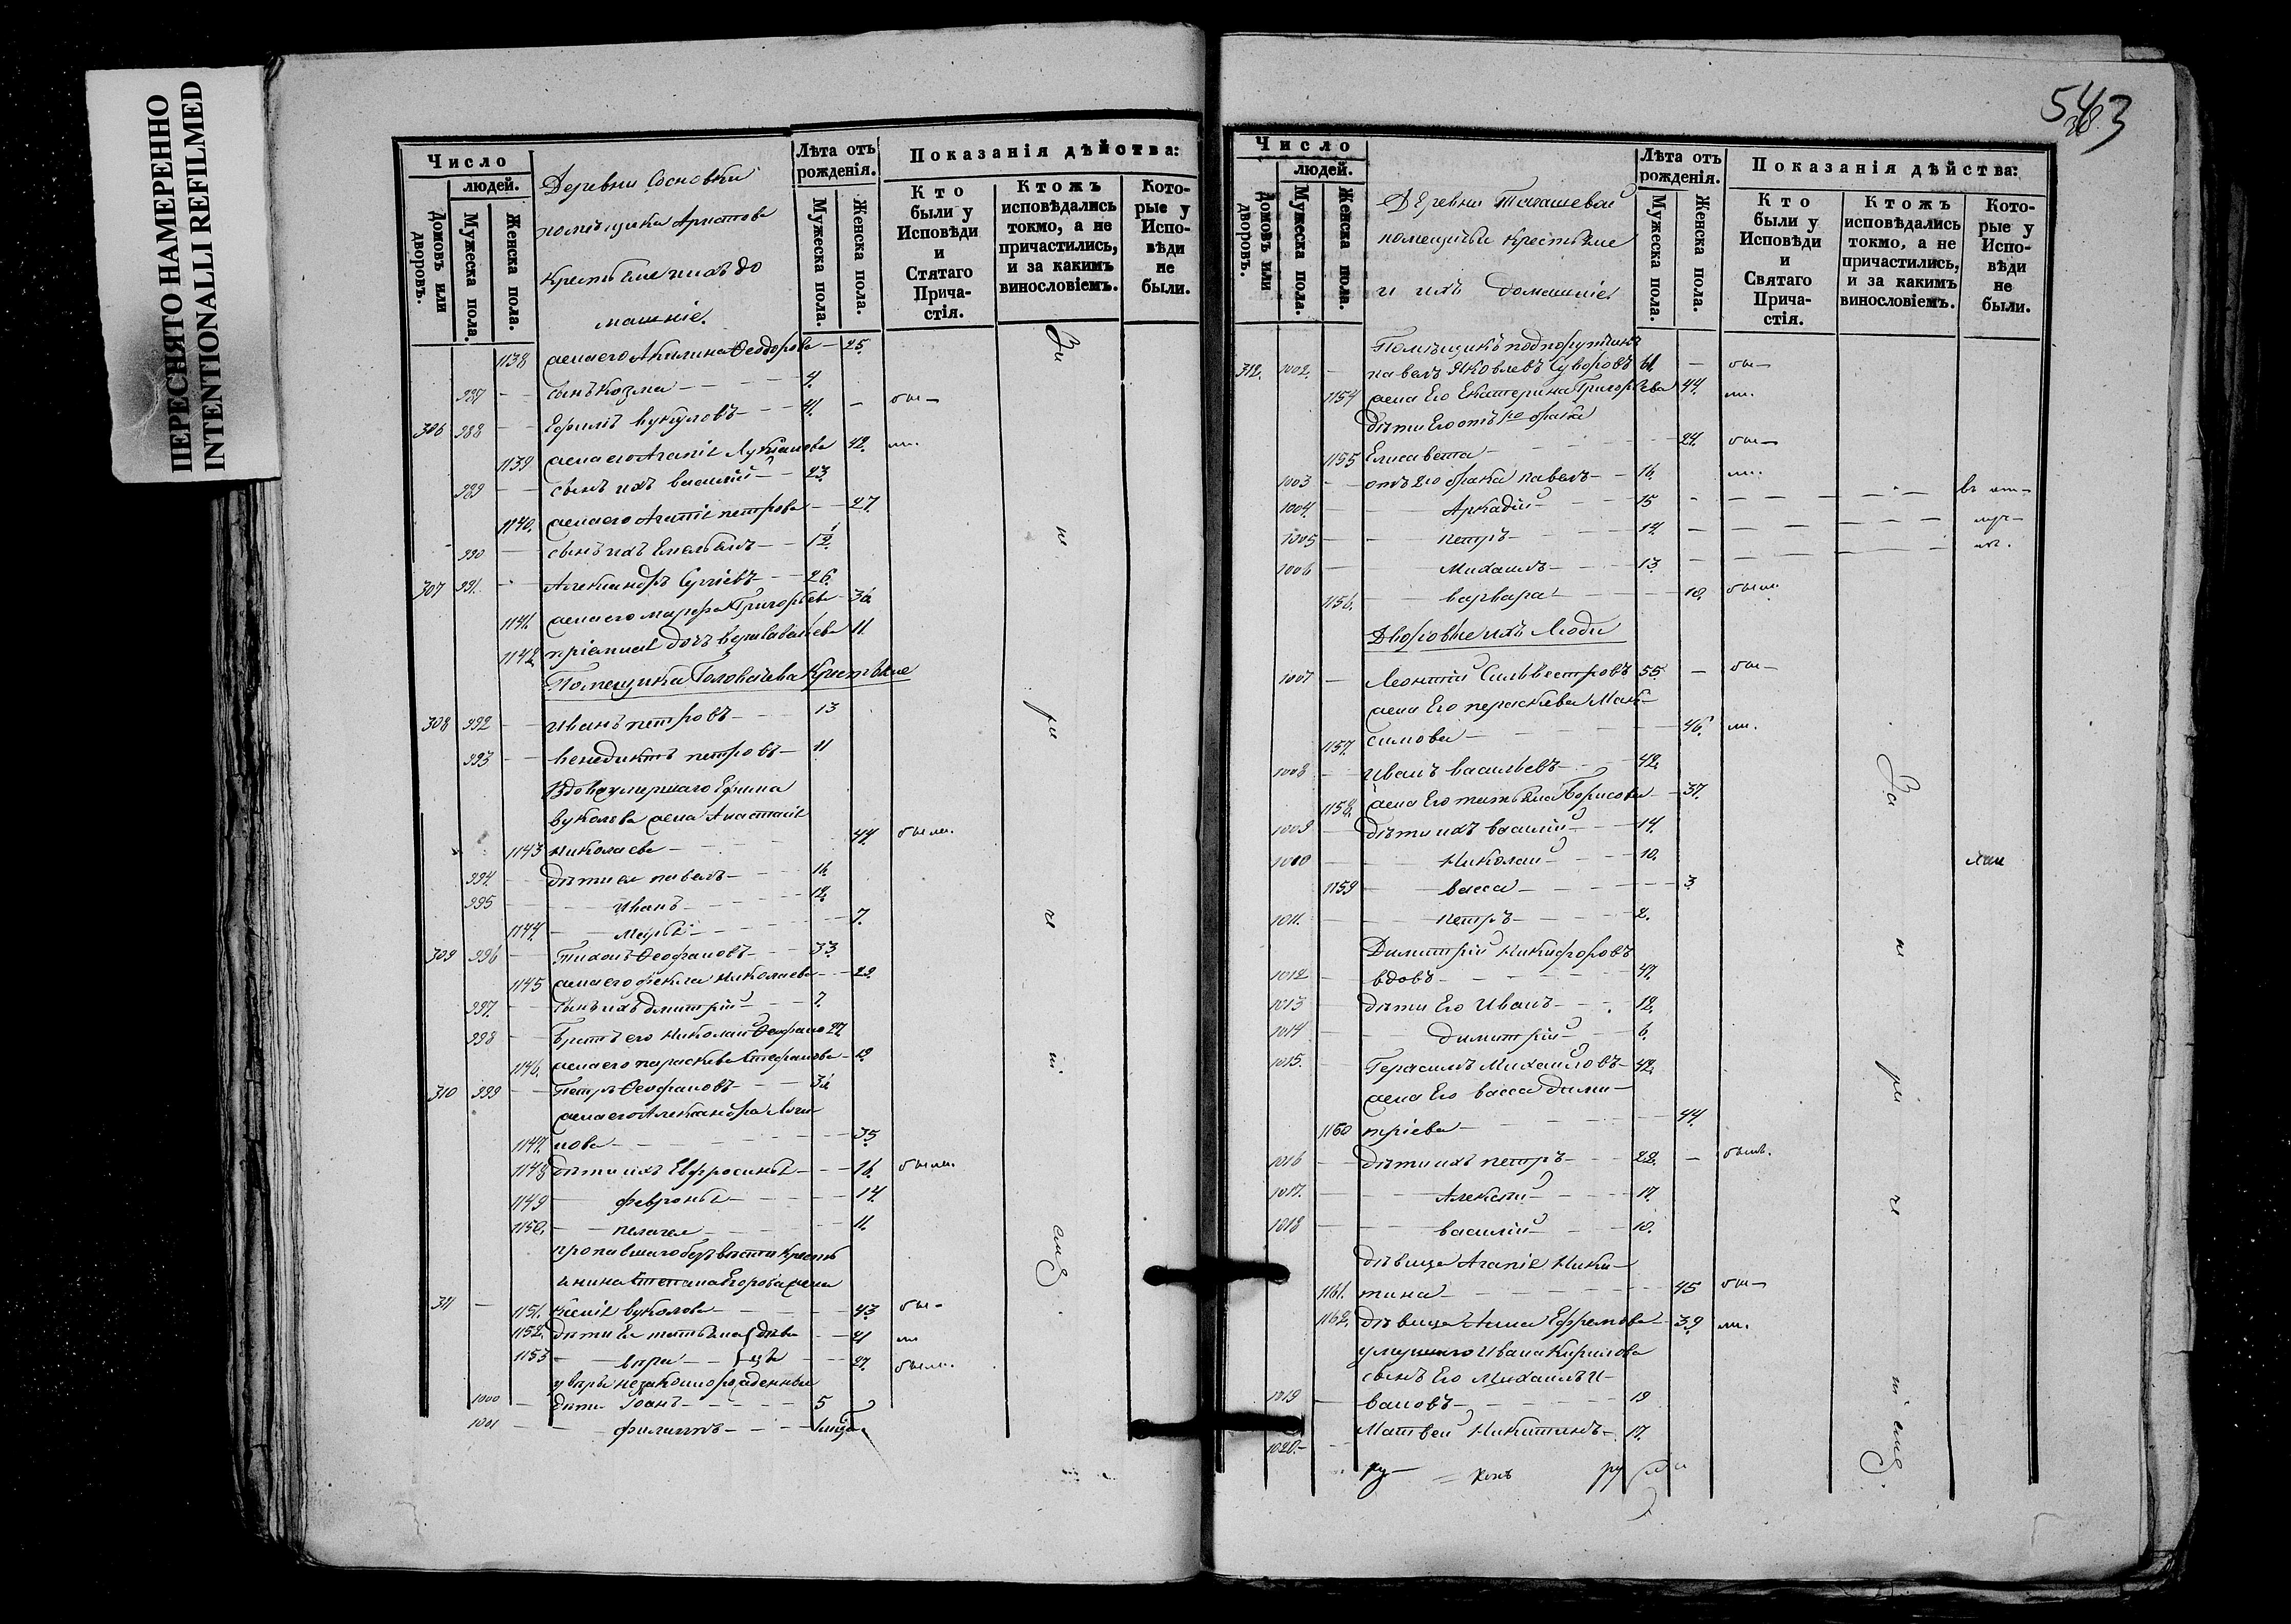 ПЕРЕСНЯТО НАМЕРЕННО
INTENTIONALLI REFILMED
Число
людей.
Домовъ или дворовъ.
Мужеска пола.
Женска пола.
Деревни Сосновки
помѣщика Аристова
Крестьяне и ихъ до
машніе.
Лѣта отъ рожденія.
Мужеска пола.
Женска пола.
Показанія дѣйства:
Кто были у Исповѣди и Стятаго Прича- стія.
Ктожъ исповѣдались токмо, а не причастились, и за какимъ винословіемъ.
Кото- рые у Испо- вѣди не были.
1138 жена его Акилина Феодорова — 25.
987 — сынъ Козма — 4.
306 988 — Ефимъ Вукуловъ — 41. — бы—
1139 жена его Агапія Лукіанова 42. ли.
989 — сынъ ихъ Василій — 23.
1140. жена его Агапія Петрова — 27.
990 — сынъ ихъ Емельянъ — 1/2.
307 991. — Александръ Сергіевъ — 26.
1141. жена его Марфа Григорьева — 30.
1142 пріемная дочь 11.
Помещика Головачева Крестьяне
308 992 — Иванъ Петровъ — 13
993 — Венедиктъ Петровъ — 11
Вдова умершаго Ефима
Вуколова жена Анастасія
1143 Николаева — 44. были.
994. — дѣти ея Павелъ — 16.
995 — Иванъ — 12.
1144. — Марья — 7.
309 996 — Тихонъ Феофановъ — 33.
1145 жена его Фекла Николаева — 29.
997. — сынъ ихъ Дмитрій — 7.
998 — Братъ его Николай Феофано 27
1146. жена его Параскева Стефанова — 19
310 999 — Петръ Феофановъ — 34
жена его Александра Логи
1147. нова — 35
1148 дѣти ихъ Евфросинья — 16. были.
1149 — Февронья — 14.
1150. — Пелагея — 11.
пропавшаго безъ вѣсти Кресть
янина Степана Егорова жена
311 — 1151. Ксенія Вуколова — 43 бы—
1152. дѣти Ея Татьяна дѣви 21 ли
1153 — Вѣра — цы — 27. были.
у Вѣры незаконнорожденные
1000 — дѣти Іоанъ — 5
1001 — Филиппъ —
За
не
ри
че
ті
емъ.
543
38.
Число
людей.
Домовъ или дворовъ.
Мужеска пола.
Женска пола.
Деревни Тагашевой
помещичьи Крестьяне
и ихъ домашніе
Лѣта отъ рожденія.
Мужеска пола.
Женска пола.
Показанія дѣйства:
Кто были у Исповѣди и Святаго Прича- стія.
Ктожъ исповѣдались токмо, а не причастились, и за какимъ винословіемъ.
Кото- рые у Испо- вѣди не были.
Помѣщикъ подпоручикъ
312. 1002. — Павелъ Яковлевъ Суворовъ 61. — бы—
1154 жена Его Екатерина Григорьева 44. ли.
дѣти Его отъ 1го брака
1155 Елисавета — 24. бы—
1003 — отъ 2го брака Павелъ — 16. ли.
1004. — Аркадій — 15 — въ от—
1005 — Петръ — 14. — луч—
1006 — Михаилъ — 13. — кѣ.
1156. — Варвара — 10. были
Дворовые ихъ Люди
1007 — Леонтій Сильвестровъ 55. — бы—
жена Его Параскева Мак—
1157. симова — 46. ли.
1008 — Иванъ Васильевъ — 42.
1158. жена Его Татьяна Борисова — 37.
1009 — дѣти ихъ Василій — 14.
1010 — Николай — 10.
1159 — Васса — 3
1011. — Петръ — 2.
Димитрій Никифоровъ
1012 — вдовъ — 47.
1013 — дѣти Его Иванъ — 12.
1014 — Димитрій — 6.
1015. — Герасимъ Михайловъ — 42.
жена Его Васса Дими—
1160 тріева — 44.
1016 — дѣти ихъ Петръ — 22. — былъ.
1017. — Алексѣй — 17.
1018 — Василій — 10.
дѣвица Агапія Ники—
1161. тина — 45 бы—
1162. дѣвица Анна Ефремова — 39 ли.
умершаго Ивана Кирилова
сынъ Его Михаилъ И—
1019 — вановъ — 19
1020. — Матвей Никитинъ — 17.
За
не
ри
че
ті емъ.